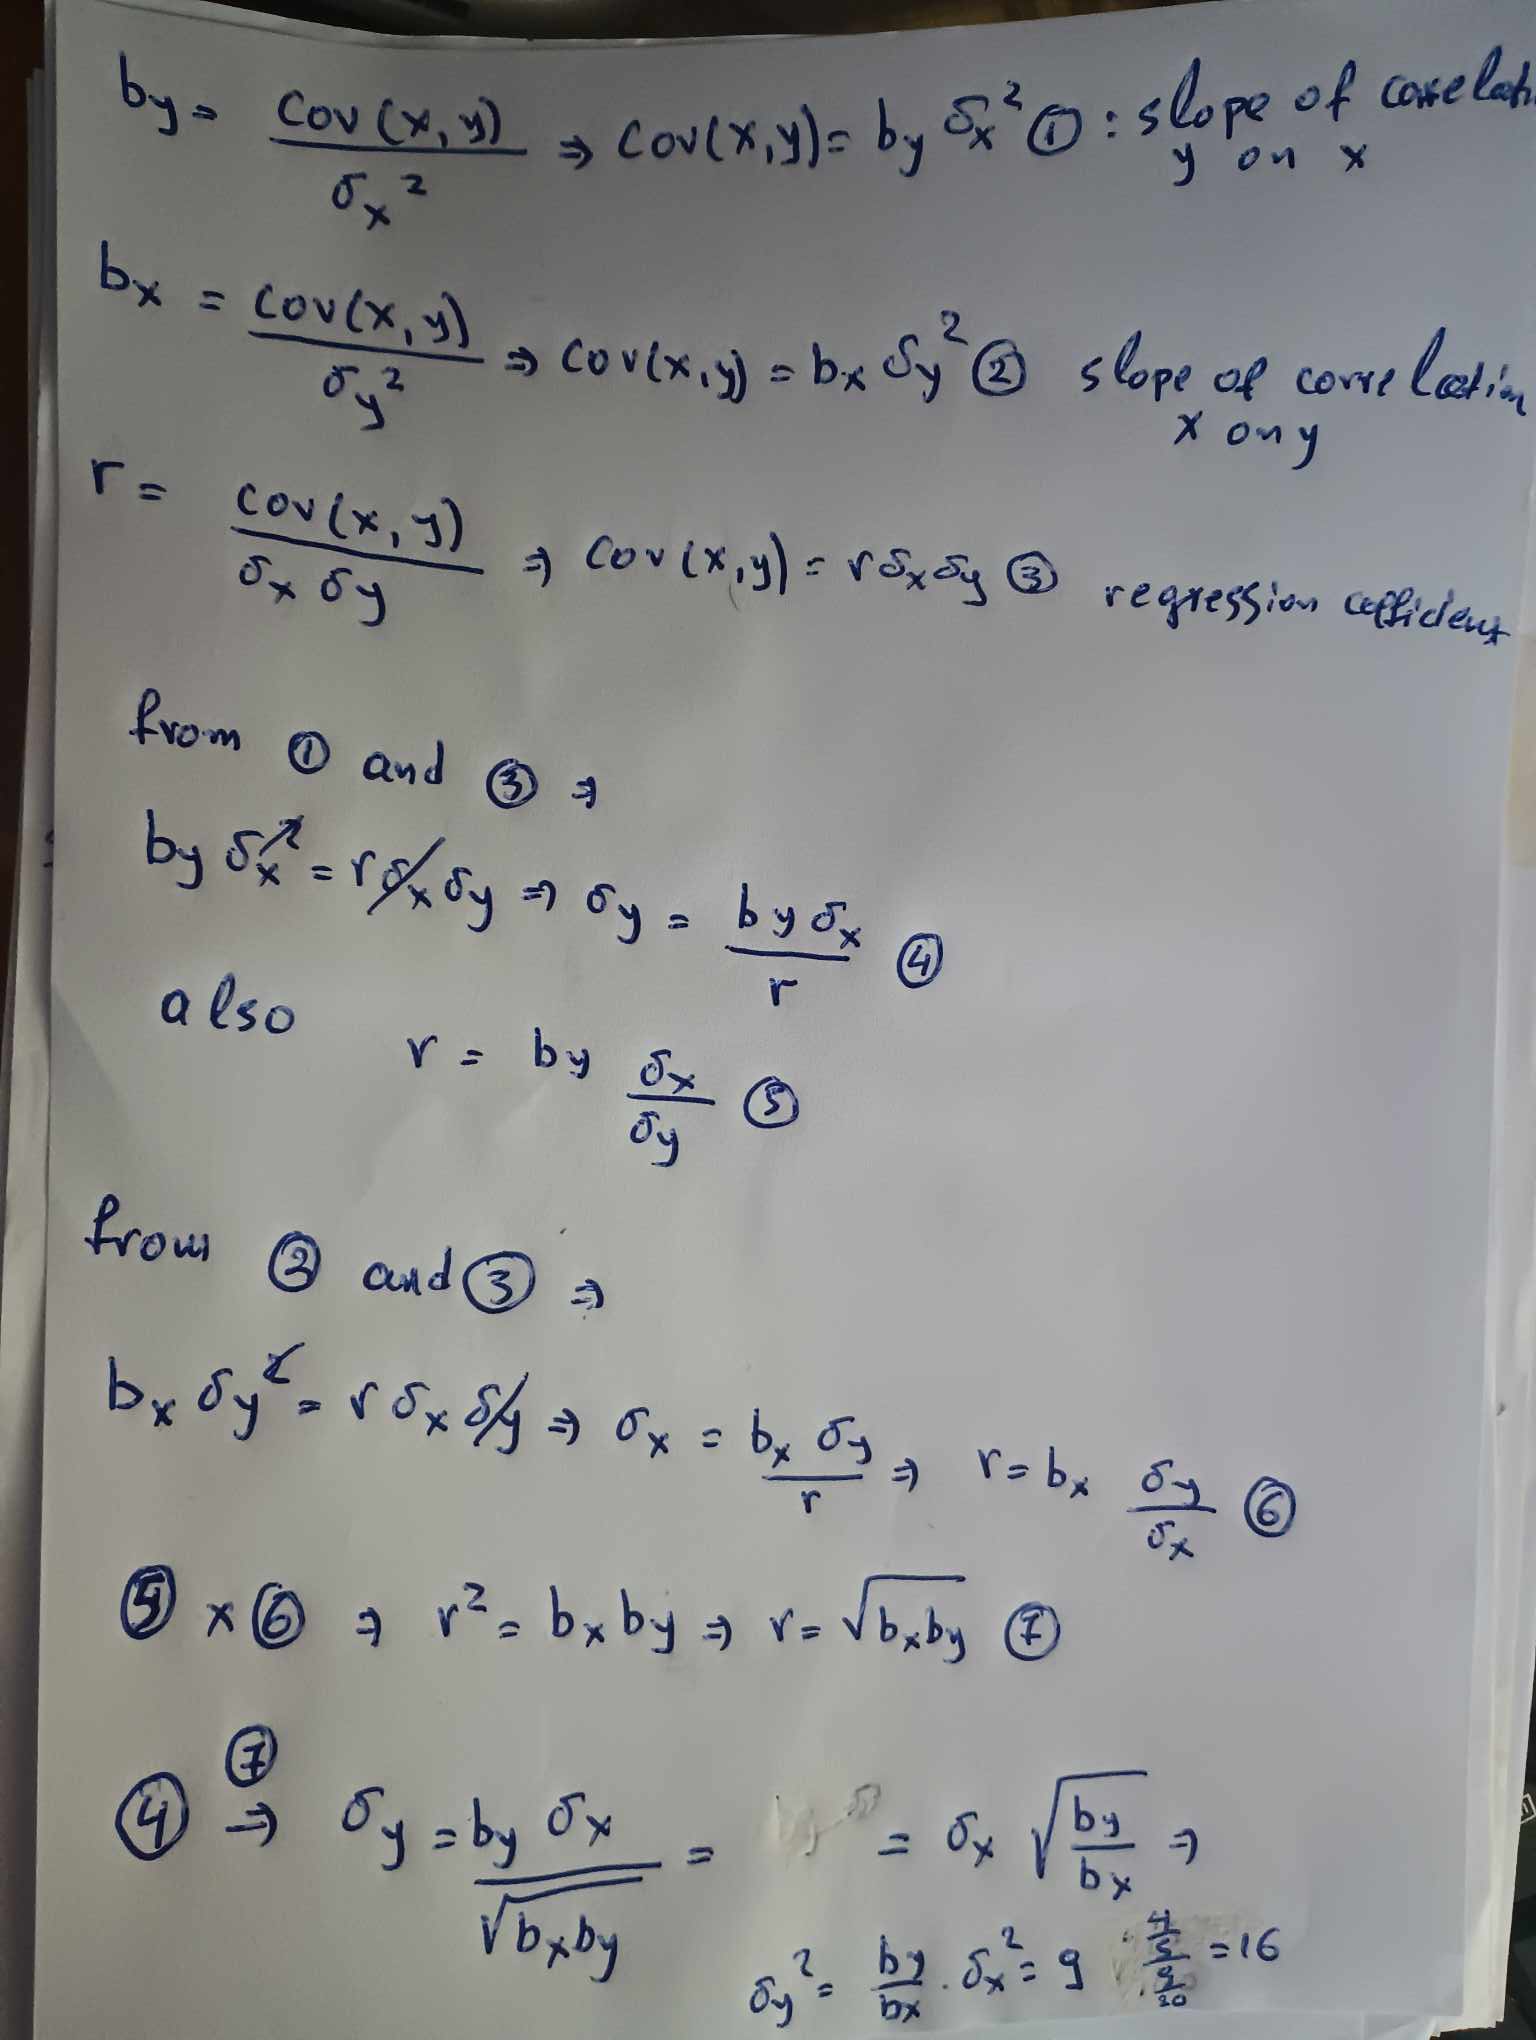 by = Cov(x,y) / σx² ⇒ Cov(x,y) = by σx² ① : slope of correlati
y on x
bx = Cov(x,y) / σy² ⇒ Cov(x,y) = bx σy² ② slope of correlation
x on y
r = Cov(x,y) / σx σy ⇒ Cov(x,y) = r σx σy ③ regression cefficient
from ① and ③ ⇒
by σx² = r σx σy ⇒ σy = by σx / r ④
also r = by σx / σy ⑤
from ② and ③ ⇒
bx σy² = r σx σy ⇒ σx = bx σy / r ⇒ r = bx σy / σx ⑥
⑤ x ⑥ ⇒ r² = bx by ⇒ r = √bx by ⑦
④ ⑦⇒ σy = by σx / √bx by = = σx √by / bx ⇒
σy² = by / bx . σx² = 9 4/5 / 9/20 = 16